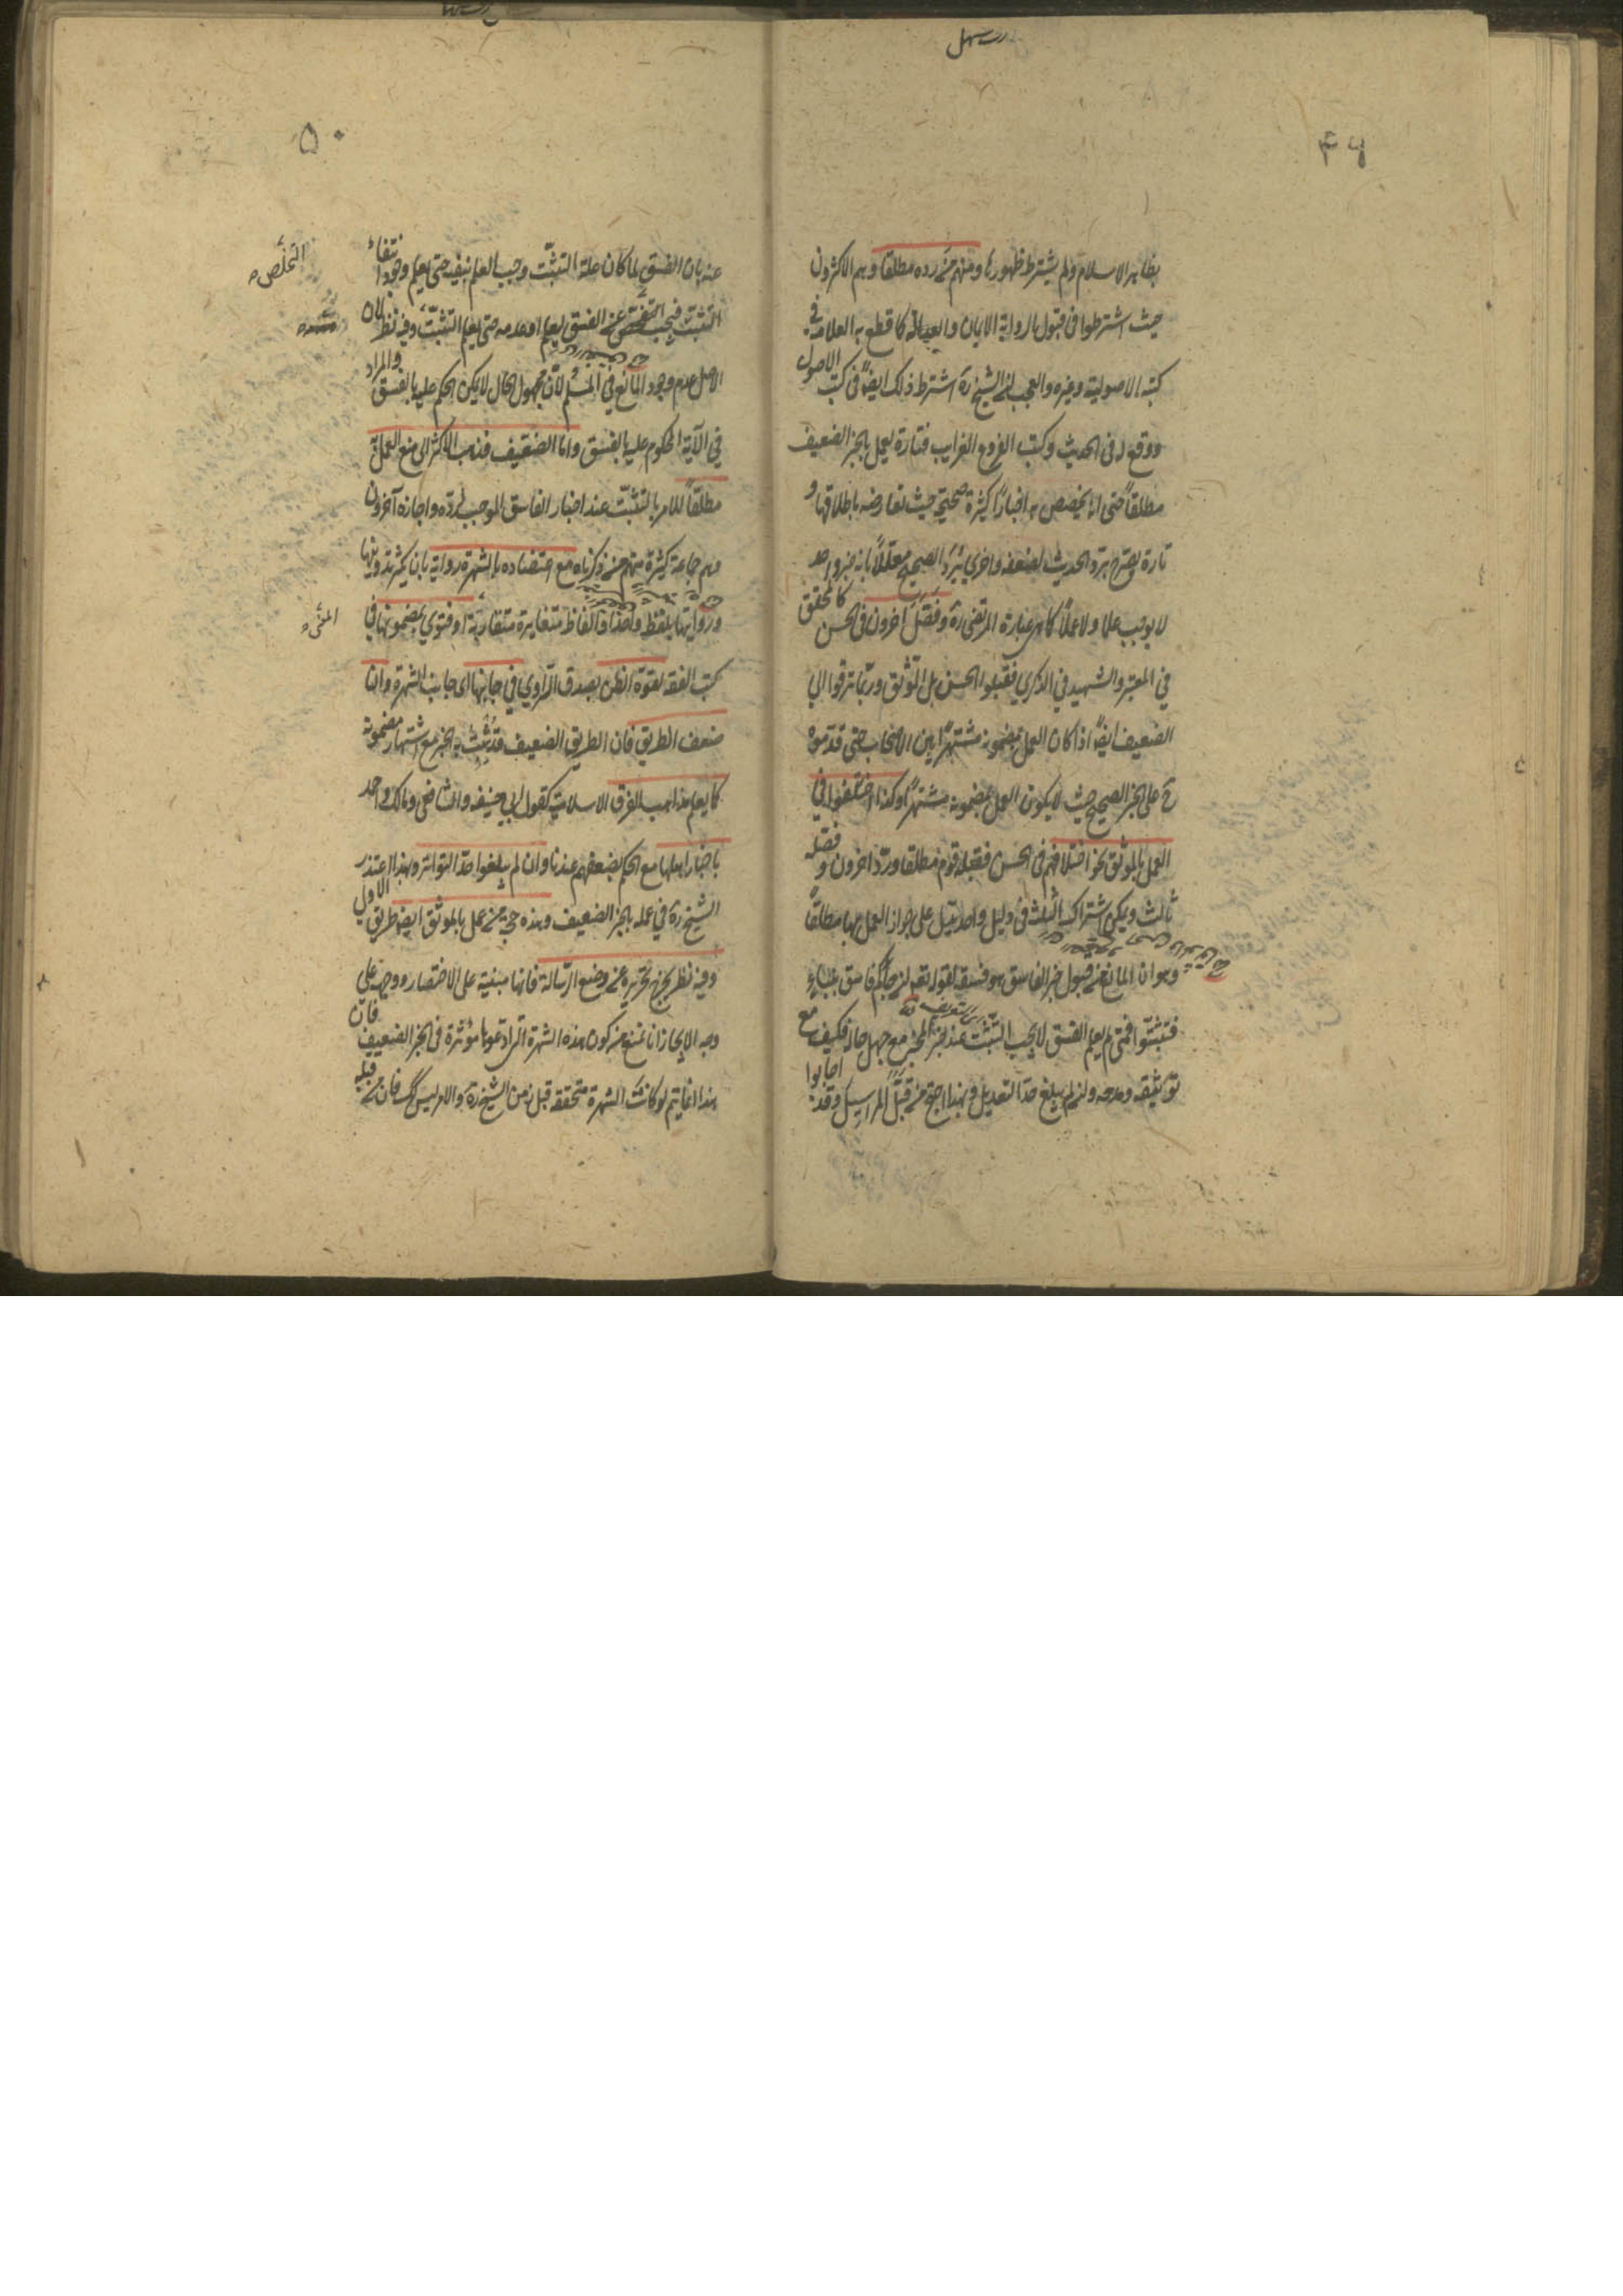 ۴۹
بظاهر الاسلام ولم يشترط ظهورها ومنهم من رده مطلقا وهم الاكثرون
حيث اشترطوا في قبول الرواية الايمان والعدالة كما قطع به العلامة في
كتبه الاصولية وغيره والعجب ان الشيخ ره اشترط ذلك ايضا في كتب الاصول
ووقع له في الحديث وكتب الفروع الغرايب فتارة يعمل بالخبر الضعيف
مطلقا حتى انه يخصص به اخبارا كثيرة صحيحة حيث تعارضه باطلاقها و
تارة يصرح برد الحديث لضعفه واخرى يرد الصحيح معللا بانه خبر واحد
لا يوجب علما ولا عملا كما هي عبارة المرتضى ره وفصل آخرون في الحسن كالمحقق
في المعتبر والشهيد في الذكرى فقبلوا الحسن بل الموثق وربما ترقوا الى
الضعيف ايضا اذا كان العمل بمضمونه مشتهرا بين الاصحاب حتى قدموه
ح على الخبر الصحيح حيث لا يكون العمل بمضمونه مشتهرا وكذا اختلفوا في
العمل بالموثق نحو اختلافهم في الحسن فقبله قوم مطلقا ورده آخرون وفصله
ثالث ويمكن اشتراك الثلث في دليل واحد يدل على جواز العمل بها مطلقا
وهو ان المانع من قبول خبر الفاسق هو فسقه لقوله تعه ان جاءكم فاسق بنباء
فتثبتوا فمتى لم يعلم الفسق لا يجب التثبت عند خبر المخبر مع جهل حاله فكيف مع
توثيقه ومدحه وان لم يبلغ حد التعديل وبهذا احتج من قبل المراسيل وقد اجابوا
۵۰
عنه بان الفسق لما كان علة التثبت وجب العلم بنفيه حتى يعلم وجود انتفاء
التثبت فيجب التفحص عن الفسق ليعلم او عدمه حتى يعلم التثبت وفيه نظر لان
الاصل عدم وجود المانع في المسلم لان مجهول الحال لا يمكن الحكم عليه بالفسق والمراد
في الآية المحكوم عليه بالفسق واما الضعيف فذهب الاكثر الى منع العمل به
مطلقا للامر بالتثبت عند اخبار الفاسق الموجب لرده واجازه آخرون
وهم جماعة كثيرة منهم من ذكرناه مع اعتضاده بالشهرة رواية بان يكثر تدوينها
وروايتها بلفظ واحد او الفاظ متغايرة متقاربة او فتوى بمضمونها في
كتب الفقه لقوة الظن بصدق الراوي في جانبها اى جانب الشهرة وان
ضعف الطريق فان الطريق الضعيف قد يثبت به الخبر مع اشتهار مضمونه
كما يعلم مذاهب الفرق الاسلامية كقول ابي حنيفه والشافعي ومالك واحمد
باخبار اهلها مع الحكم بضعفهم عندنا وان لم يبلغوا حد التواتر وبهذا اعتذر
الشيخ ره في عمله بالخبر الضعيف وهذه حجة من عمل بالموثق ايضا بطريق الاولى
وفيه نظر يخرج تحريره عن وضع الرسالة فانها مبنية على الاختصار ووجهه على
وجه الايجاز انا نمنع من كون هذه الشهرة التي ادعوها مؤثرة في الخبر الضعيف فان
هذا انما يتم لو كانت الشهرة متحققه قبل زمن الشيخ ره والامر ليس كك فان من قبله